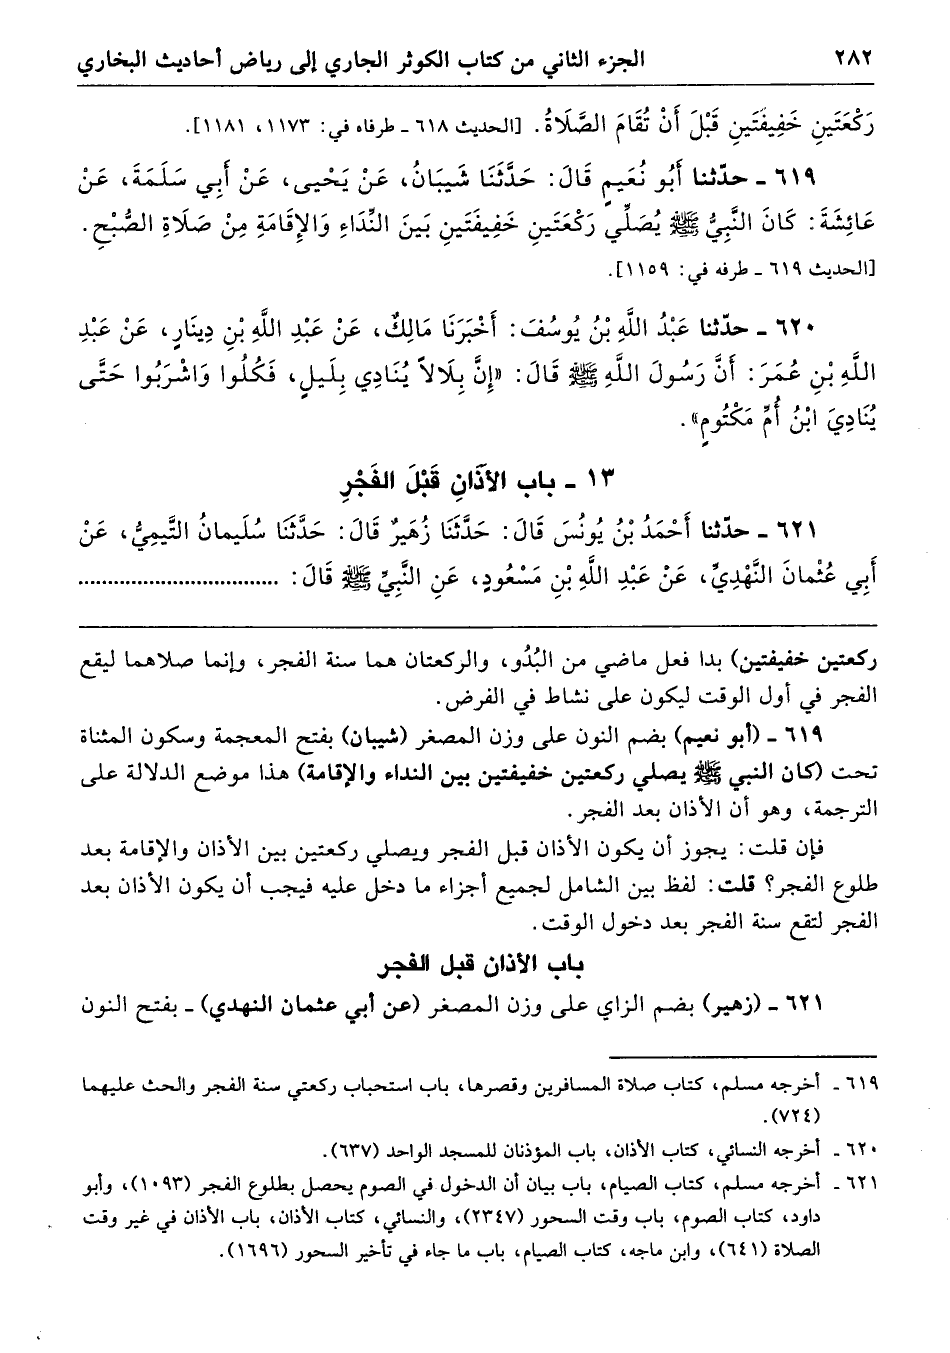 ٢٨٢ الجزء الثاني من كتاب الكوثر الجاري إلى رياض أحاديث البخاري
رَكْعَتَينِ خَفِيفَتَينِ قَبْلَ أَنْ تُقَامَ الصَّلَاةُ. [الحديث ٦١٨ ـ طرفاه في: ١١٧٣، ١١٨١].
٦١٩ ـ حدّثنا أَبُو نُعَيمٍ قَالَ: حَدَّثَنَا شَيبَانُ، عَنْ يَحْيى، عَنْ أَبِي سَلَمَةَ، عَنْ
عَائِشَةَ: كَانَ النَّبِيُّ ﷺ يُصَلِّي رَكْعَتَينِ خَفِيفَتَينِ بَينَ النِّدَاءِ وَالإِقَامَةِ مِنْ صَلَاةِ الصُّبْحِ.
[الحديث ٦١٩ ـ طرفه في: ١١٥٩].
٦٢٠ ـ حدّثنا عَبْدُ اللَّهِ بْنُ يُوسُفَ: أَخْبَرَنَا مَالِكٌ، عَنْ عَبْدِ اللَّهِ بْنِ دِينَارٍ، عَنْ عَبْدِ
اللَّهِ بْنِ عُمَرَ: أَنَّ رَسُولَ اللَّهِ ﷺ قَالَ: «إِنَّ بِلَالاً يُنَادِي بِلَيلٍ، فَكُلُوا وَاشْرَبُوا حَتَّى
يُنَادِيَ ابْنُ أُمِّ مَكْتُومٍ».
١٣ ـ باب الأَذَانِ قَبْلَ الفَجْرِ
٦٢١ ـ حدّثنا أَحْمَدُ بْنُ يُونُسَ قَالَ: حَدَّثَنَا زُهَيرٌ قَالَ: حَدَّثَنَا سُلَيمانُ التَّيمِيُّ، عَنْ
أَبِي عُثْمانَ النَّهْدِيِّ، عَنْ عَبْدِ اللَّهِ بْنِ مَسْعُودٍ، عَنِ النَّبِيِّ ﷺ قَالَ: ..................................
ركعتين خفيفتين) بدا فعل ماضي من البُدُو، والركعتان هما سنة الفجر، وإنما صلاهما ليقع
الفجر في أول الوقت ليكون على نشاط في الفرض.
٦١٩ ـ (أبو نعيم) بضم النون على وزن المصغر (شيبان) بفتح المعجمة وسكون المثناة
تحت (كان النبي ﷺ يصلي ركعتين خفيفتين بين النداء والإقامة) هذا موضع الدلالة على
الترجمة، وهو أن الأذان بعد الفجر.
فإن قلت: يجوز أن يكون الأذان قبل الفجر ويصلي ركعتين بين الأذان والإقامة بعد
طلوع الفجر؟ قلت: لفظ بين الشامل لجميع أجزاء ما دخل عليه فيجب أن يكون الأذان بعد
الفجر لتقع سنة الفجر بعد دخول الوقت.
باب الأذان قبل الفجر
٦٢١ ـ (زهير) بضم الزاي على وزن المصغر (عن أبي عثمان النهدي) ـ بفتح النون
٦١٩ ـ أخرجه مسلم، كتاب صلاة المسافرين وقصرها، باب استحباب ركعتي سنة الفجر والحث عليهما
(٧٢٤).
٦٢٠ ـ أخرجه النسائي، كتاب الأذان، باب المؤذنان للمسجد الواحد (٦٣٧).
٦٢١ ـ أخرجه مسلم، كتاب الصيام، باب بيان أن الدخول في الصوم يحصل بطلوع الفجر (١٠٩٣)، وأبو
داود، كتاب الصوم، باب وقت السحور (٢٣٤٧)، والنسائي، كتاب الأذان، باب الأذان في غير وقت
الصلاة (٦٤١)، وابن ماجه، كتاب الصيام، باب ما جاء في تأخير السحور (١٦٩٦).